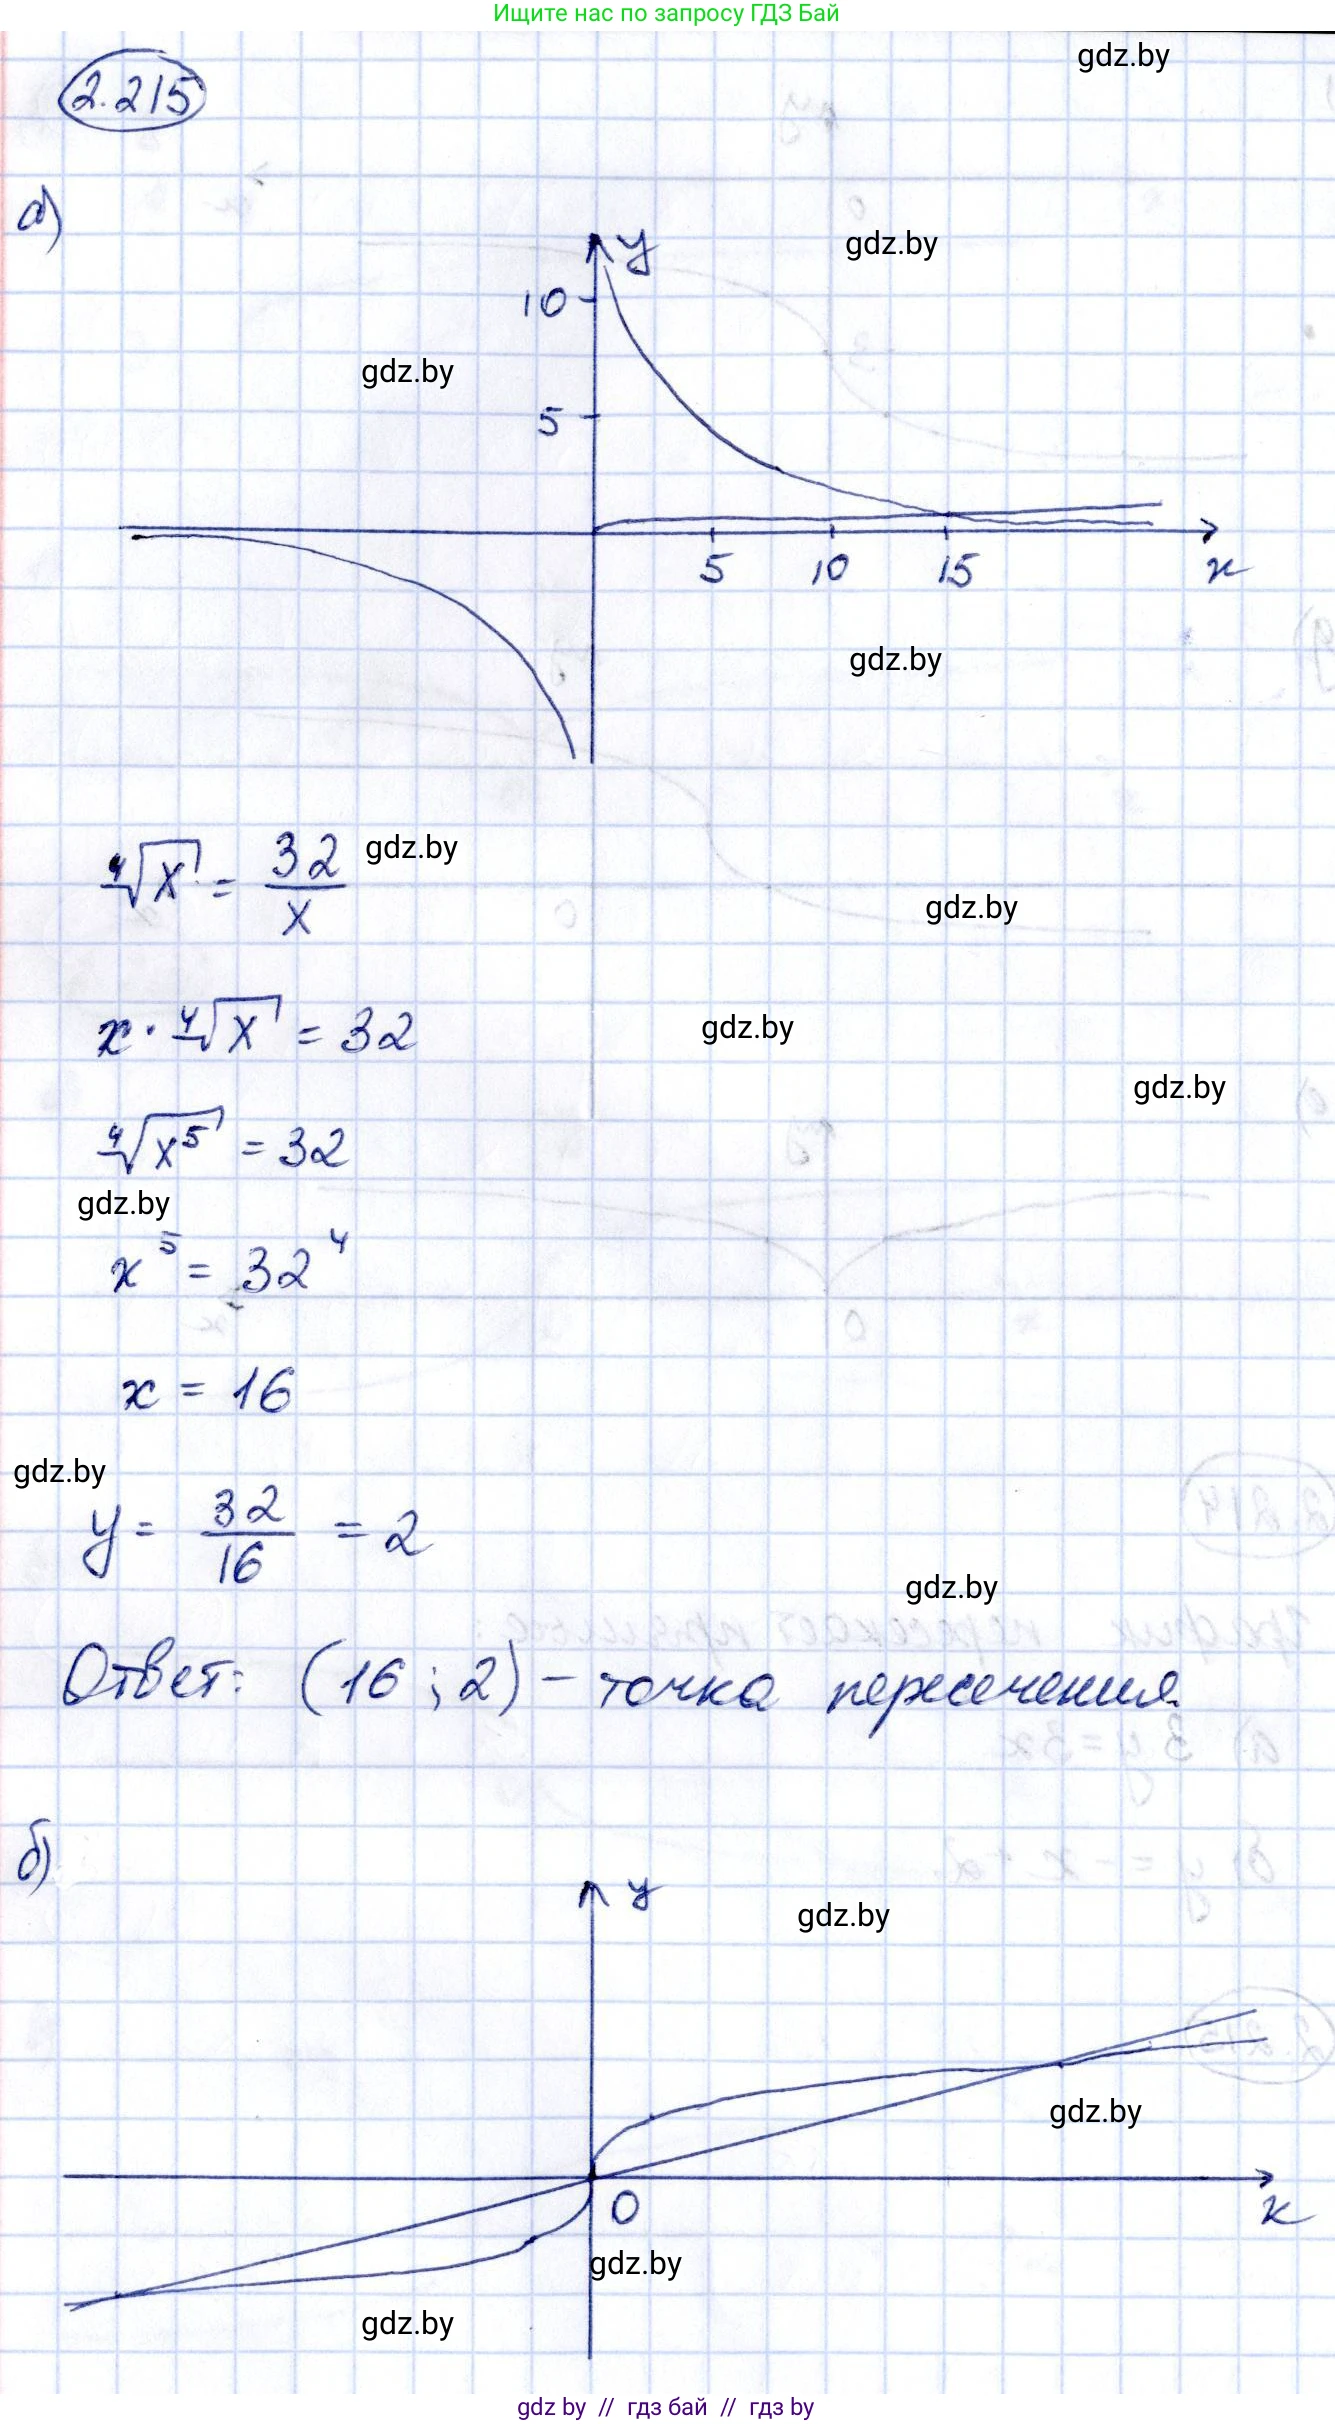 Ищите нас по запросу ГДЗ Бай
gdz.by
2.215
а)
gdz.by
y
10
gdz.by
5
5 10 15 x
gdz.by
⁴√x = 32/x
gdz.by
gdz.by
x · ⁴√x = 32
gdz.by
gdz.by
⁴√x⁵ = 32
gdz.by
x⁵ = 32⁴
x = 16
gdz.by
y = 32/16 = 2
gdz.by
Ответ: (16 ; 2) – точка пересечения.
б)
y
gdz.by
gdz.by
0 x
gdz.by
gdz.by
gdz by // гдз бай // гдз by